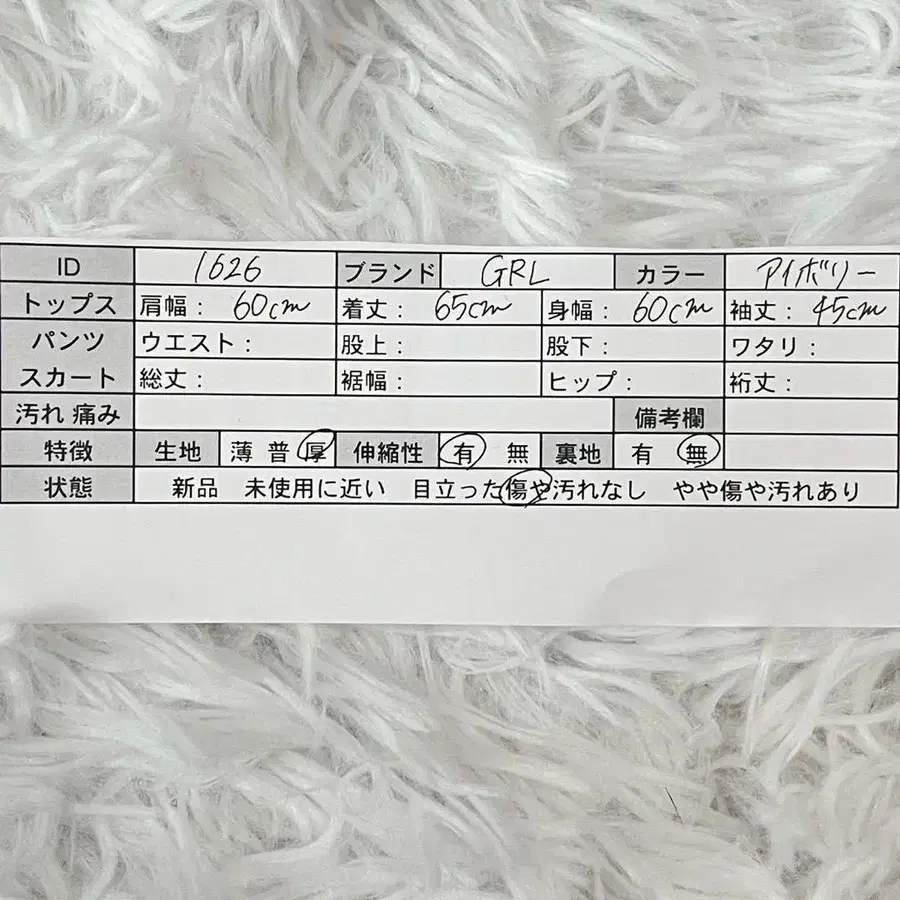 ID 1626 ブランド GRL カラー アイボリー
トップス 肩幅： 60cm 着丈： 65cm 身幅： 60cm 袖丈： 45cm
パンツ ウエスト： 股上： 股下： ワタリ：
スカート 総丈： 裾幅： ヒップ： 裄丈：
汚れ 痛み 備考欄
特徴 生地 薄 普 厚 伸縮性 有 無 裏地 有 無
状態 新品 未使用に近い 目立った傷や汚れなし やや傷や汚れあり